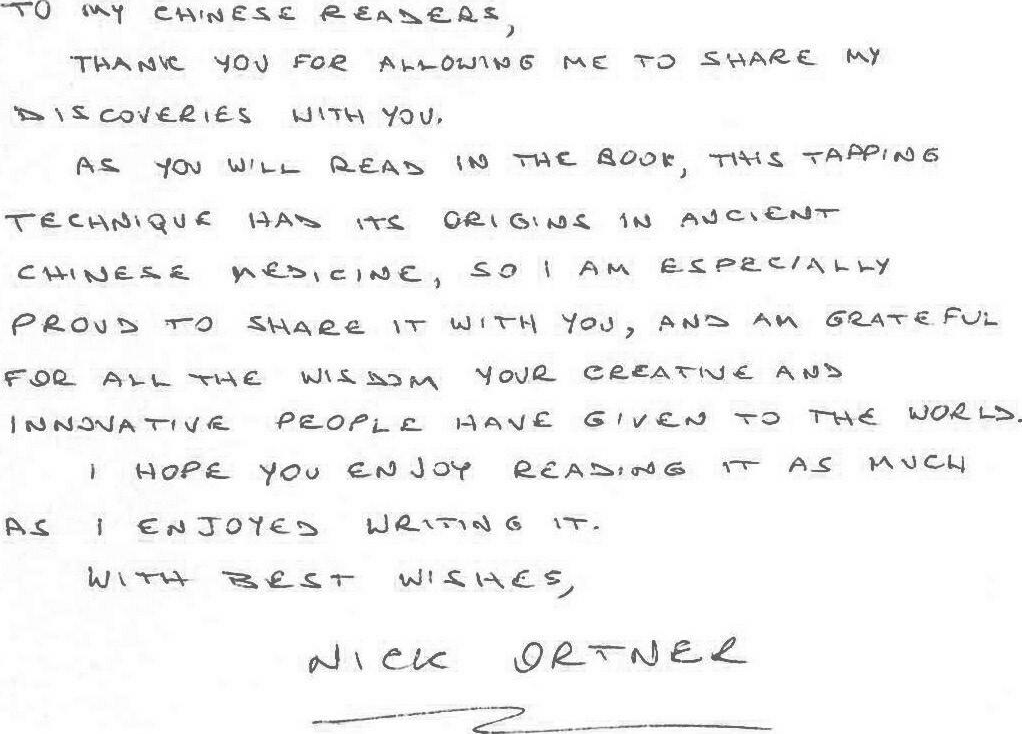 TO MY CHINESE READERS,
THANK YOU FOR ALLOWING ME TO SHARE MY
DISCOVERIES WITH YOU.
AS YOU WILL READ IN THE BOOK, THIS TAPPING
TECHNIQUE HAD ITS ORIGINS IN ANCIENT
CHINESE MEDICINE, SO I AM ESPECIALLY
PROUD TO SHARE IT WITH YOU, AND AM GRATEFUL
FOR ALL THE WISDOM YOUR CREATIVE AND
INNOVATIVE PEOPLE HAVE GIVEN TO THE WORLD.
I HOPE YOU ENJOY READING IT AS MUCH
AS I ENJOYED WRITING IT.
WITH BEST WISHES,
NICK ORTNER